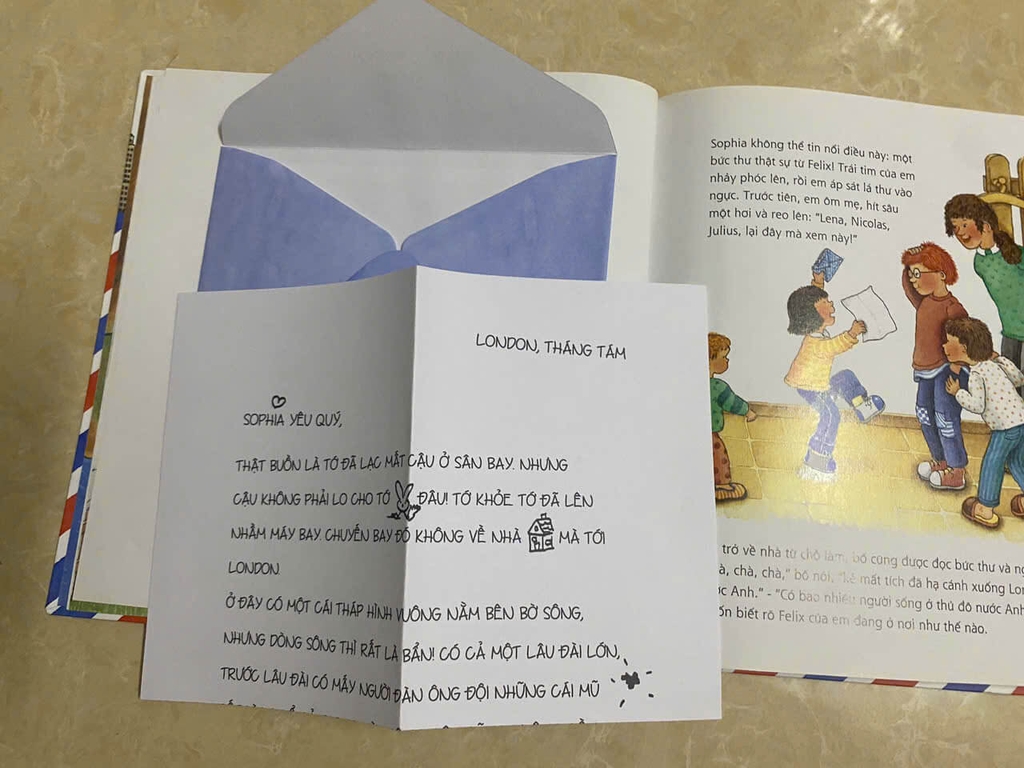 Sophia không thể tin nổi điều này: một
bức thư thật sự từ Felix! Trái tim của em
nhảy phóc lên, rồi em áp sát lá thư vào
ngực. Trước tiên, em ôm mẹ, hít sâu
một hơi và reo lên: “Lena, Nicolas,
Julius, lại đây mà xem này!”
LONDON, THÁNG TÁM
SOPHIA YÊU QUÝ,
THẬT BUỒN LÀ TỚ ĐÃ LẠC MẤT CẬU Ở SÂN BAY. NHƯNG
CẬU KHÔNG PHẢI LO CHO TỚ ĐÂU! TỚ KHỎE. TỚ ĐÃ LÊN
NHẦM MÁY BAY. CHUYẾN BAY ĐÓ KHÔNG VỀ NHÀ MÀ TỚI
LONDON.
Ở ĐÂY CÓ MỘT CÁI THÁP HÌNH VUÔNG NẰM BÊN BỜ SÔNG,
NHƯNG DÒNG SÔNG THÌ RẤT LÀ BẨN! CÓ CẢ MỘT LÂU ĐÀI LỚN,
TRƯỚC LÂU ĐÀI CÓ MẤY NGƯỜI ĐÀN ÔNG ĐỘI NHỮNG CÁI MŨ
trở về nhà từ chỗ làm, bố cũng được đọc bức thư và
chà, chà,” bố nói, “kẻ mất tích đã hạ cánh xuống
Anh.” - “Có bao nhiêu người sống ở thủ đô nước Anh
biết rõ Felix của em đang ở nơi như thế nào.